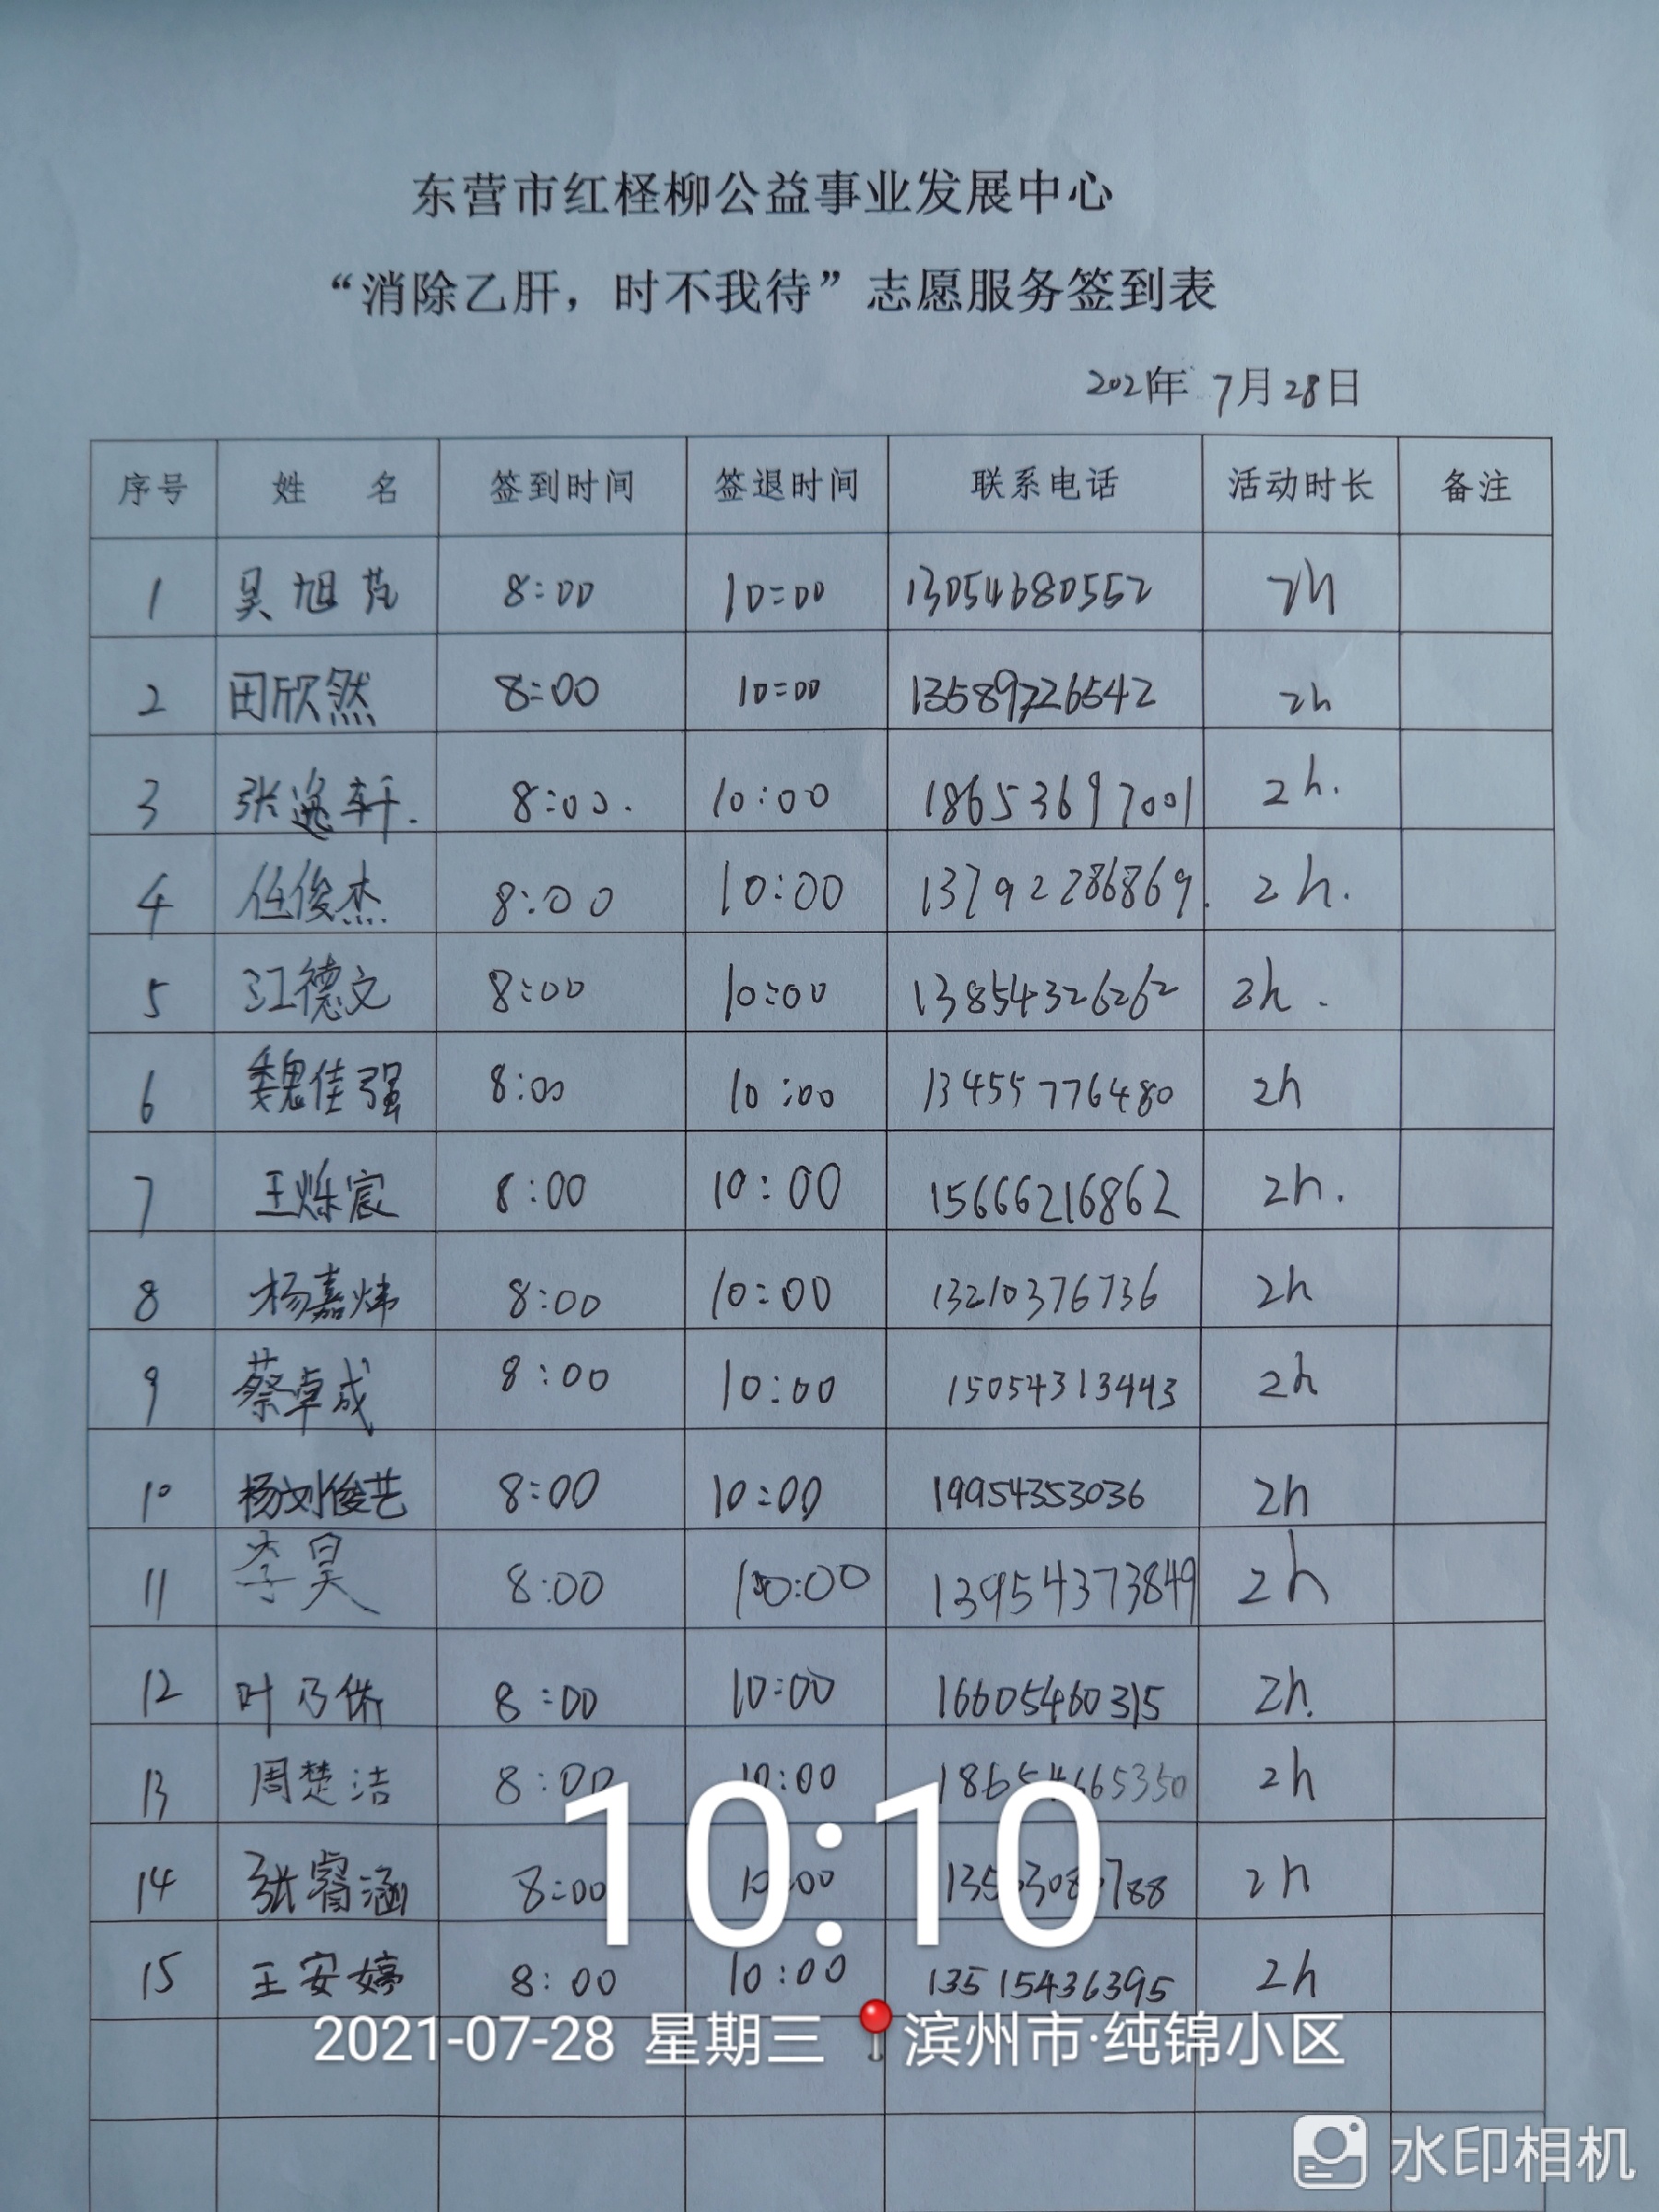 东营市红柽柳公益事业发展中心
“消除乙肝，时不我待”志愿服务签到表
2021年 7月28日
序号 姓 名 签到时间 签退时间 联系电话 活动时长 备注
1 吴旭 8:00 10:00 13054680552 2h
2 田欣然 8:00 10:00 13589726542 2h
3 张逸轩. 8:00. 10:00 18653697001 2h.
4 任俊杰 8:00 10:00 13792286869. 2h.
5 江德文 8:00 10:00 13854326262 2h.
6 魏佳强 8:00 10:00 13455776480 2h
7 王烁宸 8:00 10:00 15666216862 2h.
8 杨嘉炜 8:00 10:00 13210376736 2h
9 蔡卓成 8:00 10:00 15054313443 2h
10 杨刘俊艺 8:00 10:00 19954353036 2h
11 李昊 8:00 10:00 13954373849 2h
12 叶乃 8:00 10:00 16605460315 2h.
13 周楚洁 8:00 10:00 2h
14 张睿涵 8:00 10:00 2h
15 王安婷 8:00 10:00 13515436395 2h
10:10
2021-07-28 星期三 滨州市·纯锦小区
水印相机